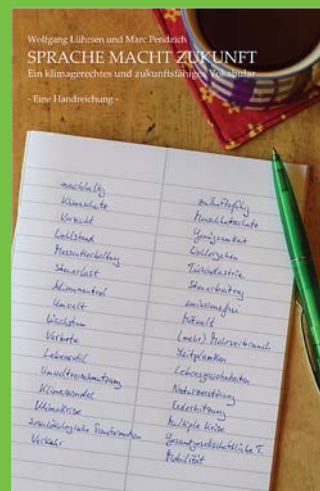 Wolfgang Lührsen und Marc Pendzich
SPRACHE MACHT ZUKUNFT
Ein klimagerechtes und zukunftsfähiges Vokabular
- Eine Handreichung -
nachhaltig
Klimaschutz
Verzicht
Wohlstand
Massentierhaltung
Steuerlast
klimaneutral
Umwelt
Wachstum
Verbote
Lebensstil
Umweltverschmutzung
Klimawandel
Klimakrise
sozialökologische Transformation
Verkehr
zukunftsfähig
Menschheitsschutz
Genügsamkeit
Wohlergehen
Tierindustrie
Steuerbeitrag
emissionsfrei
Mitwelt
(mehr) Mehrverbrauch
Leitplanken
Lebensgewohnheiten
Naturzerstörung
Erderhitzung
Multiple Krise
Gesamtgesellschaftliche T.
Mobilität